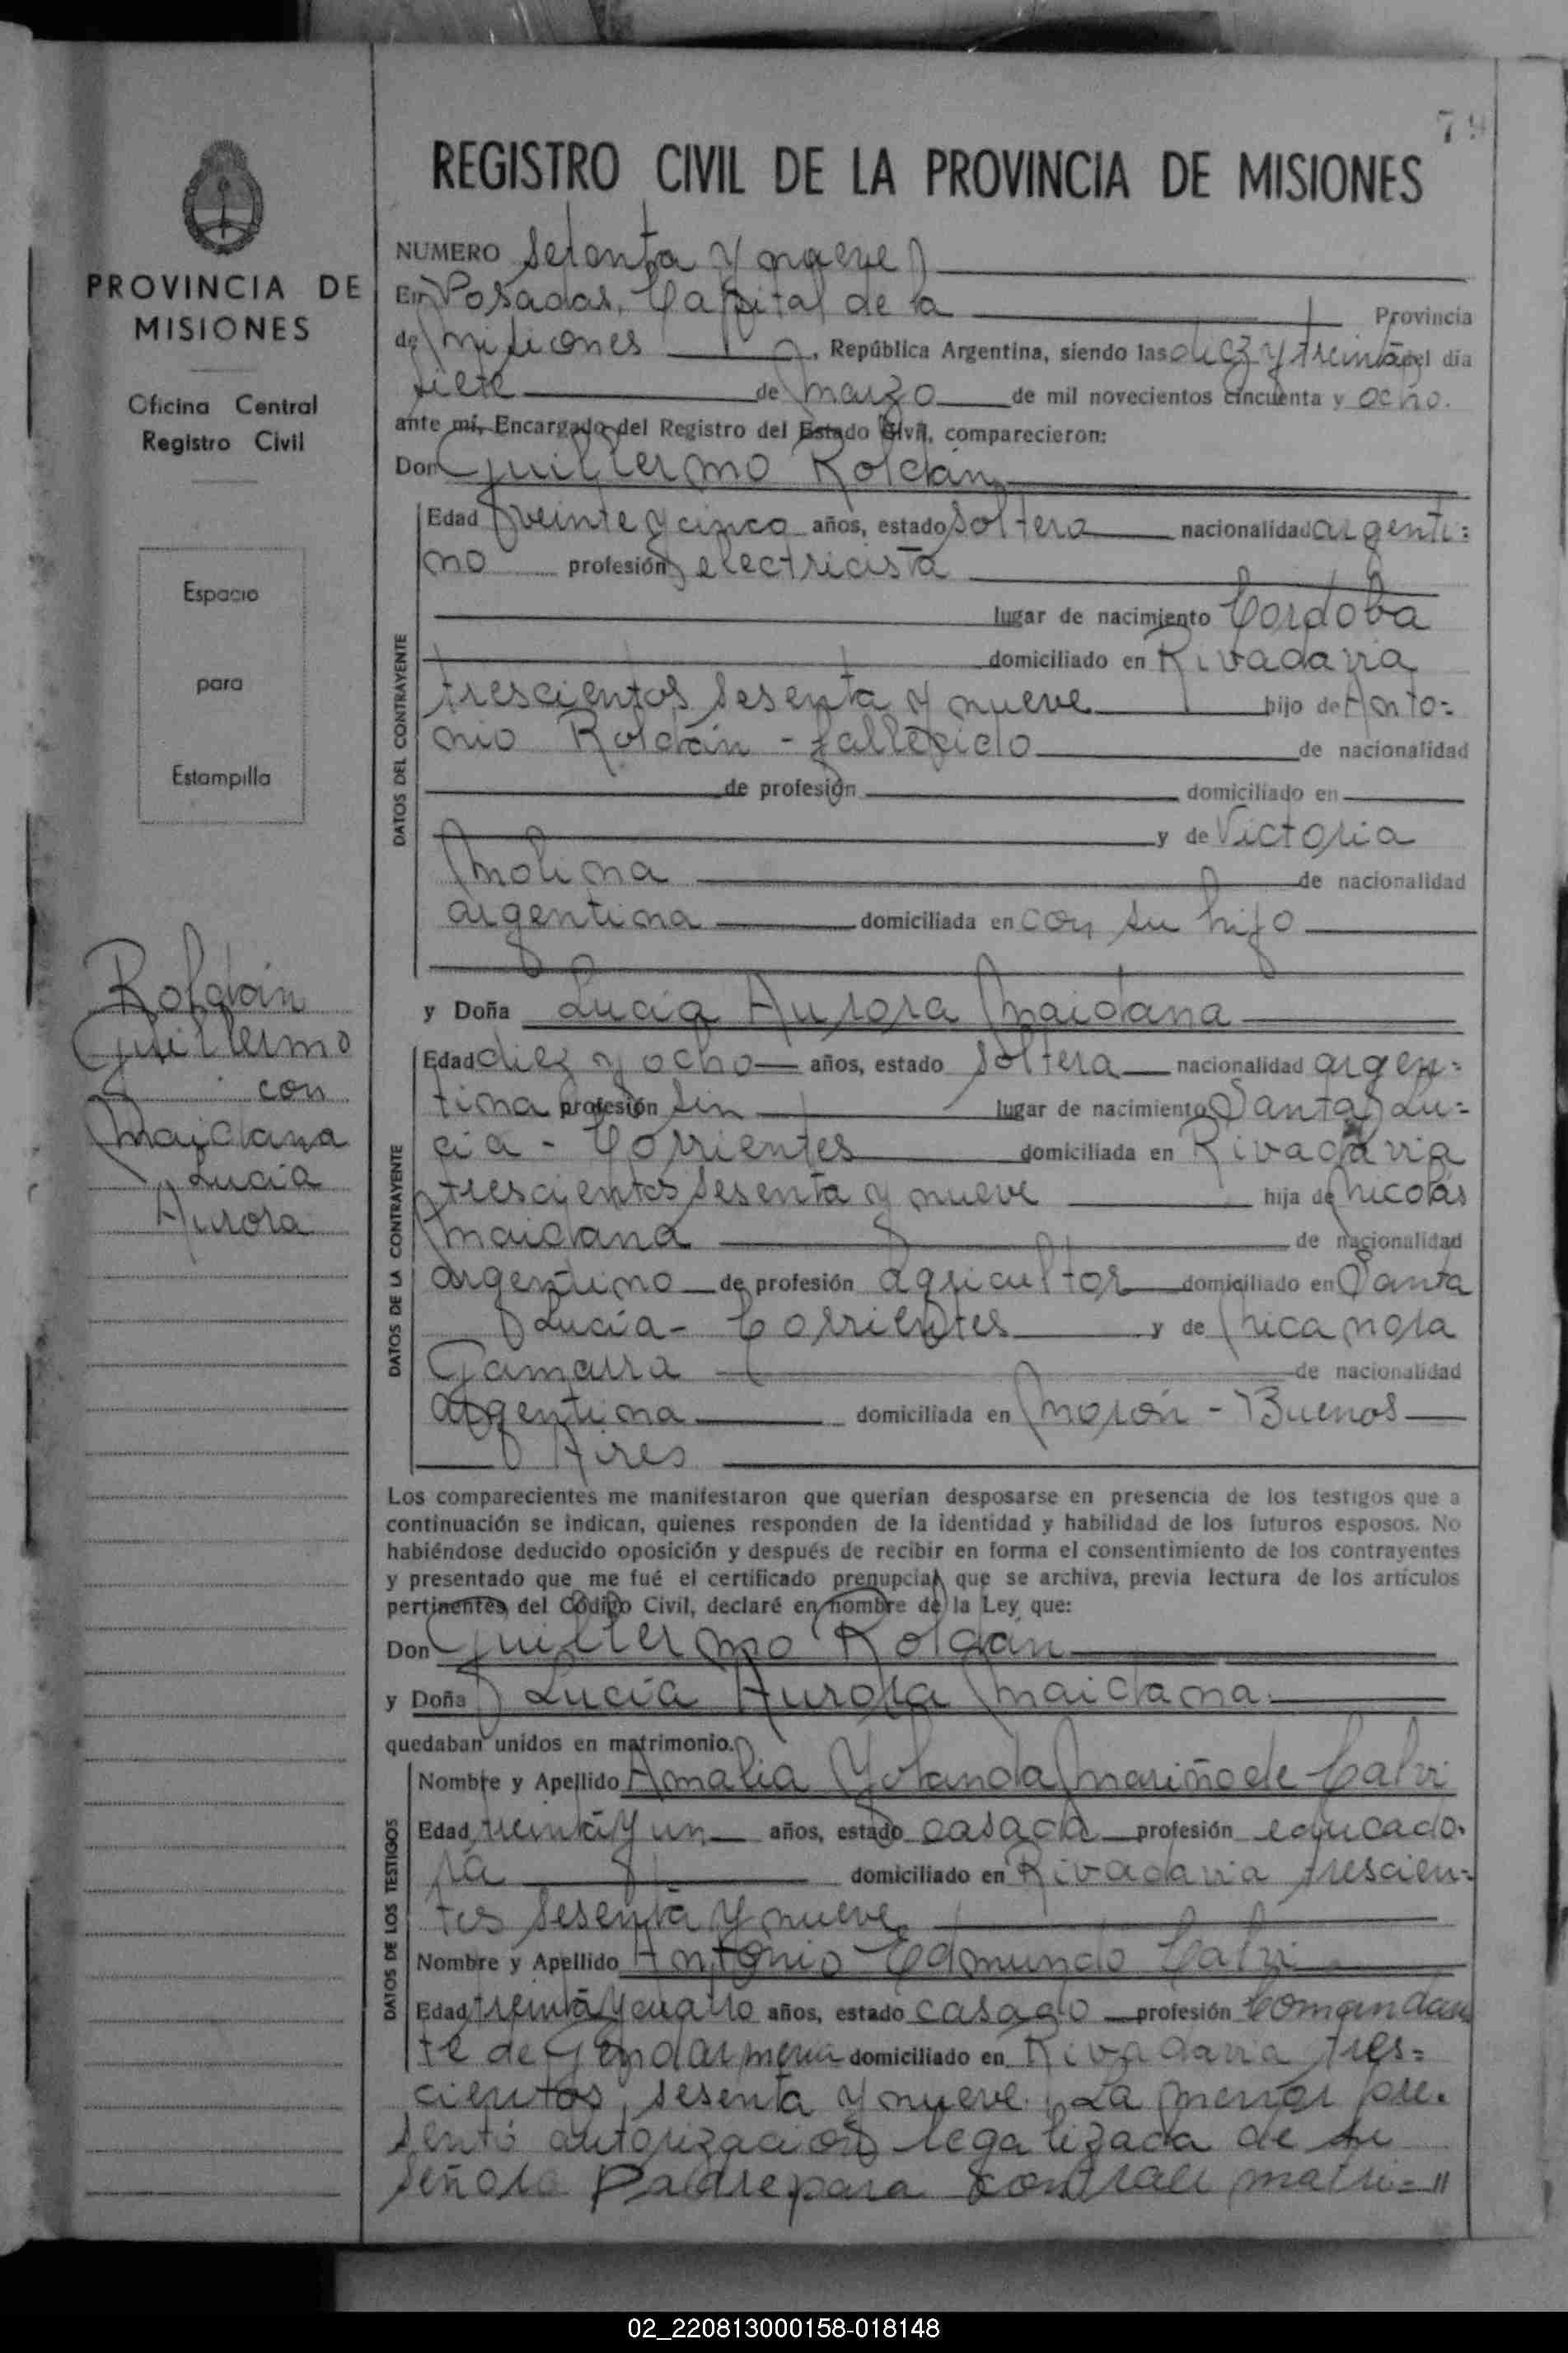 79
REGISTRO CIVIL DE LA PROVINCIA DE MISIONES
PROVINCIA DE
MISIONES
Oficina Central
Registro Civil
Espacio
para
Estampilla
Roldán
Guillermo
con
Maidana
Lucía
Aurora
NUMERO Setenta y nueve
En Posadas, Capital de la Provincia
de Misiones, República Argentina, siendo las diez y treinta del día
siete de Marzo de mil novecientos cincuenta y ocho.
ante mí, Encargado del Registro del Estado Civil, comparecieron:
Don Guillermo Roldán
DATOS DEL CONTRAYENTE
Edad veinte y cinco años, estado soltero nacionalidad argenti=
no profesión electricista
lugar de nacimiento Córdoba
domiciliado en Rivadavia
trescientos sesenta y nueve hijo de Anto=
nio Roldán - fallecido de nacionalidad
de profesión domiciliado en
y de Victoria
Molina de nacionalidad
argentina domiciliada en con su hijo
y Doña Lucía Aurora Maidana
DATOS DE LA CONTRAYENTE
Edad diez y ocho años, estado soltera nacionalidad argen=
tina profesión sin lugar de nacimiento Santa Lu=
cía - Corrientes domiciliada en Rivadavia
trescientos sesenta y nueve hija de Nicolás
Maidana de nacionalidad
argentino de profesión agricultor domiciliado en Santa
Lucía - Corrientes y de Nicanora
Gamarra de nacionalidad
argentina domiciliada en Morón - Buenos
Aires
Los comparecientes me manifestaron que querían desposarse en presencia de los testigos que a
continuación se indican, quienes responden de la identidad y habilidad de los futuros esposos. No
habiéndose deducido oposición y después de recibir en forma el consentimiento de los contrayentes
y presentado que me fué el certificado prenupcial que se archiva, previa lectura de los artículos
pertinentes del Código Civil, declaré en nombre de la Ley que:
Don Guillermo Roldán
y Doña Lucía Aurora Maidana
quedaban unidos en matrimonio.
DATOS DE LOS TESTIGOS
Nombre y Apellido Amalia Yolanda Mariño de Calvi
Edad treinta y un años, estado casada profesión educado=
ra domiciliado en Rivadavia trescien=
tos sesenta y nueve
Nombre y Apellido Antonio Edmundo Calvi
Edad treinta y cuatro años, estado casado profesión Comandan
te de Gendarmería domiciliado en Rivadavia tres=
cientos sesenta y nueve. La menor pre=
sentó autorización legalizada de su
señora Padre para contraer matri="
02_220813000158-018148